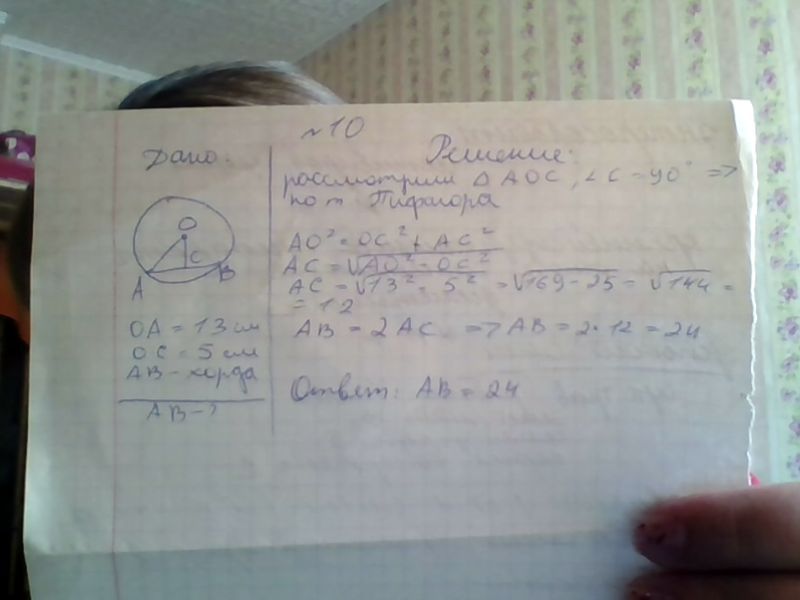 №10
Дано:
O
C
A
B
OA = 13 см
OC = 5 см
AB - хорда
AB - ?
Решение:
рассмотрим △ AOC, ∠C = 90° =>
по т. Пифагора
AO² = OC² + AC²
AC = √AO² - OC²
AC = √13² - 5² = √169 - 25 = √144 =
= 12
AB = 2 AC => AB = 2·12 = 24
Ответ: AB = 24